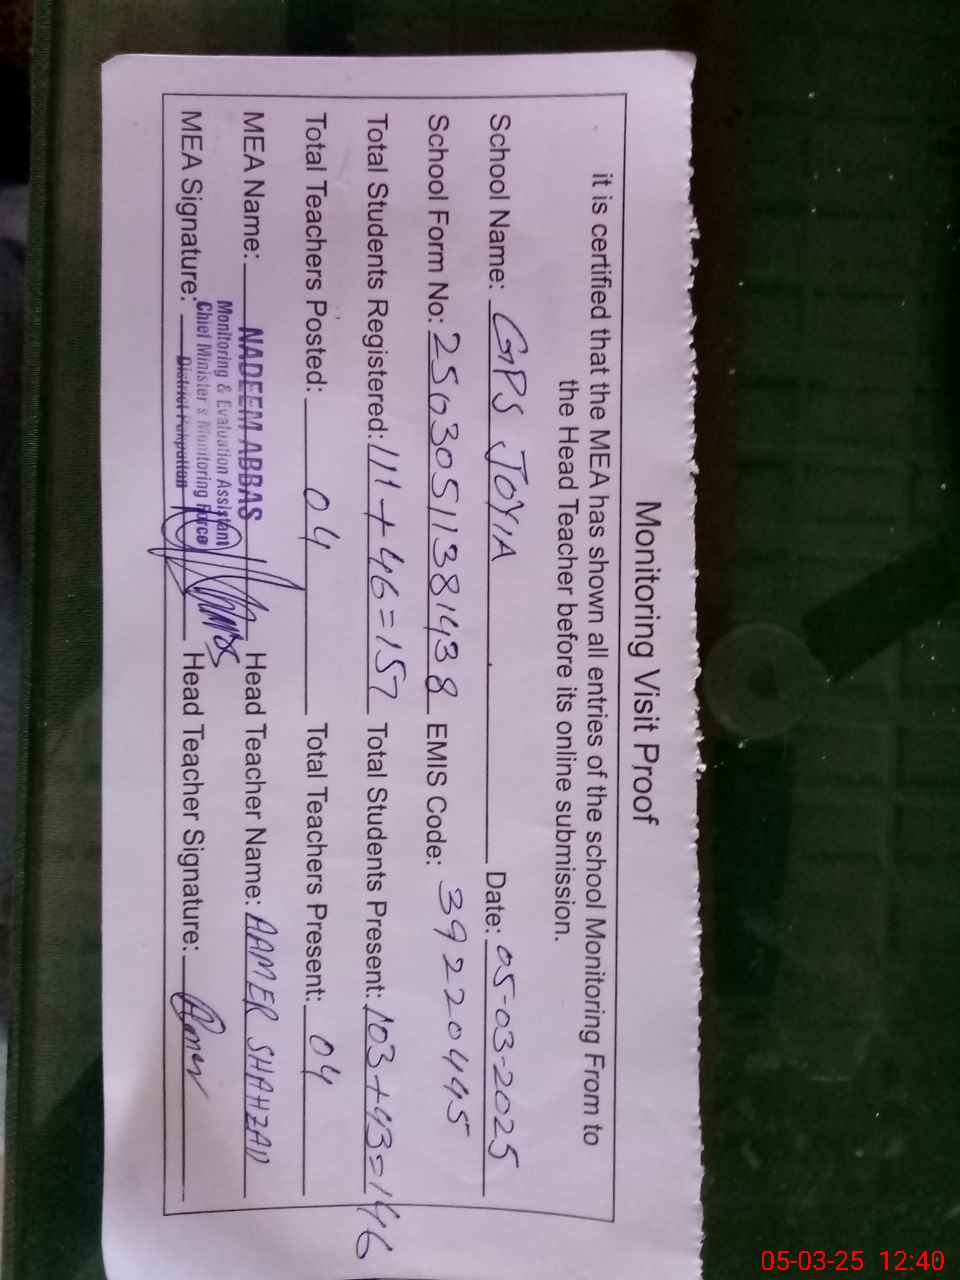 Monitoring Visit Proof
it is certified that the MEA has shown all entries of the school Monitoring From to
the Head Teacher before its online submission.
School Name: GPS JOYIA Date: 05-03-2025
School Form No: 25030511381438 EMIS Code: 39220445
Total Students Registered: 111+46=157 Total Students Present: 103+43=146
Total Teachers Posted: 04 Total Teachers Present: 04
MEA Name: NADEEM ABBAS Head Teacher Name: AAMER SHAHZAD
Monitoring & Evaluation Assistant
Chief Minister's Monitoring Force
District Pakpattan
MEA Signature: Head Teacher Signature: Amer
05-03-25 12:40